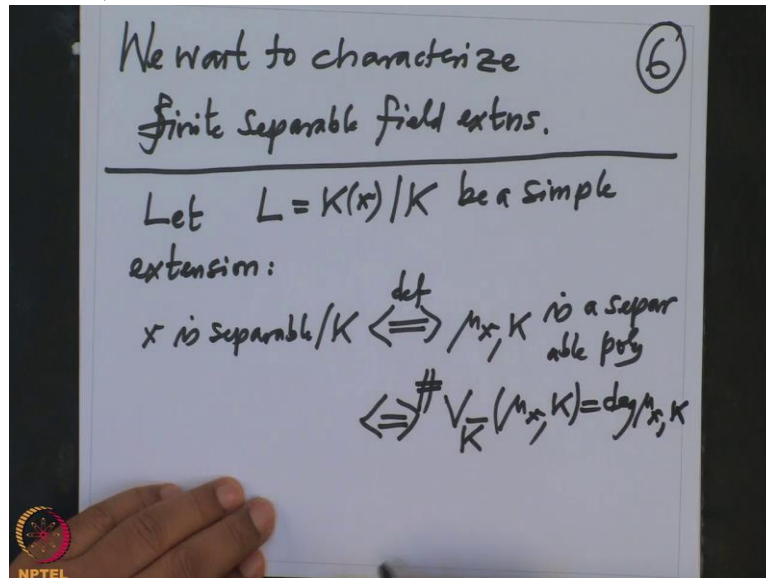 We want to characterize
finite separable field extns.
6
Let L = K(x) / K be a simple
extension:
x is separable/K <=> def μx,K is a separ
able poly
<=> # V_K̄ (μx,K) = deg μx,K
NPTEL